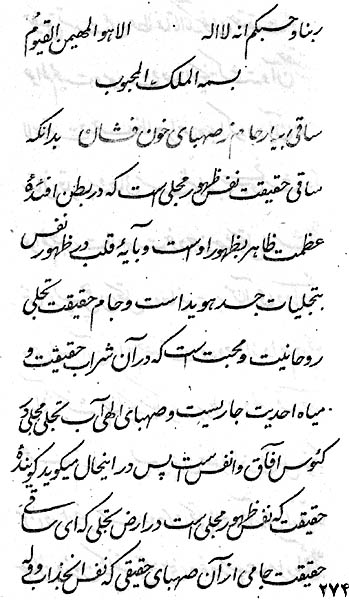 ربنا و حسبکم انه لا اله الا هو المهیمن القیوم
بسمه الملک المحبوب
ساقی بیار جام ز صهبای خون فشان بدانکه
ساقی حقیقت نفس ظهور مجلی است که در بطن افئدهٔ
عظمت ظاهر بظهور اوست و بآیهٔ قلب در ظهور نفس
بتجلیات جسد هویداست و جام حقیقت تجلی
روحانیت و محبت است که در آن شراب حقیقت و
میاه احدیت جاریست و صهبای الهی آب تجلی مجلی در
کئوس آفاق و انفس است پس در اینحال میگوید گویندهٔ
حقیقت که نفس ظهور مجلی است در ارض تجلی که ای ساقی
حقیقت جامی از آن صهبای حقیقی که نفس انجذاب و وله
۲۷۴